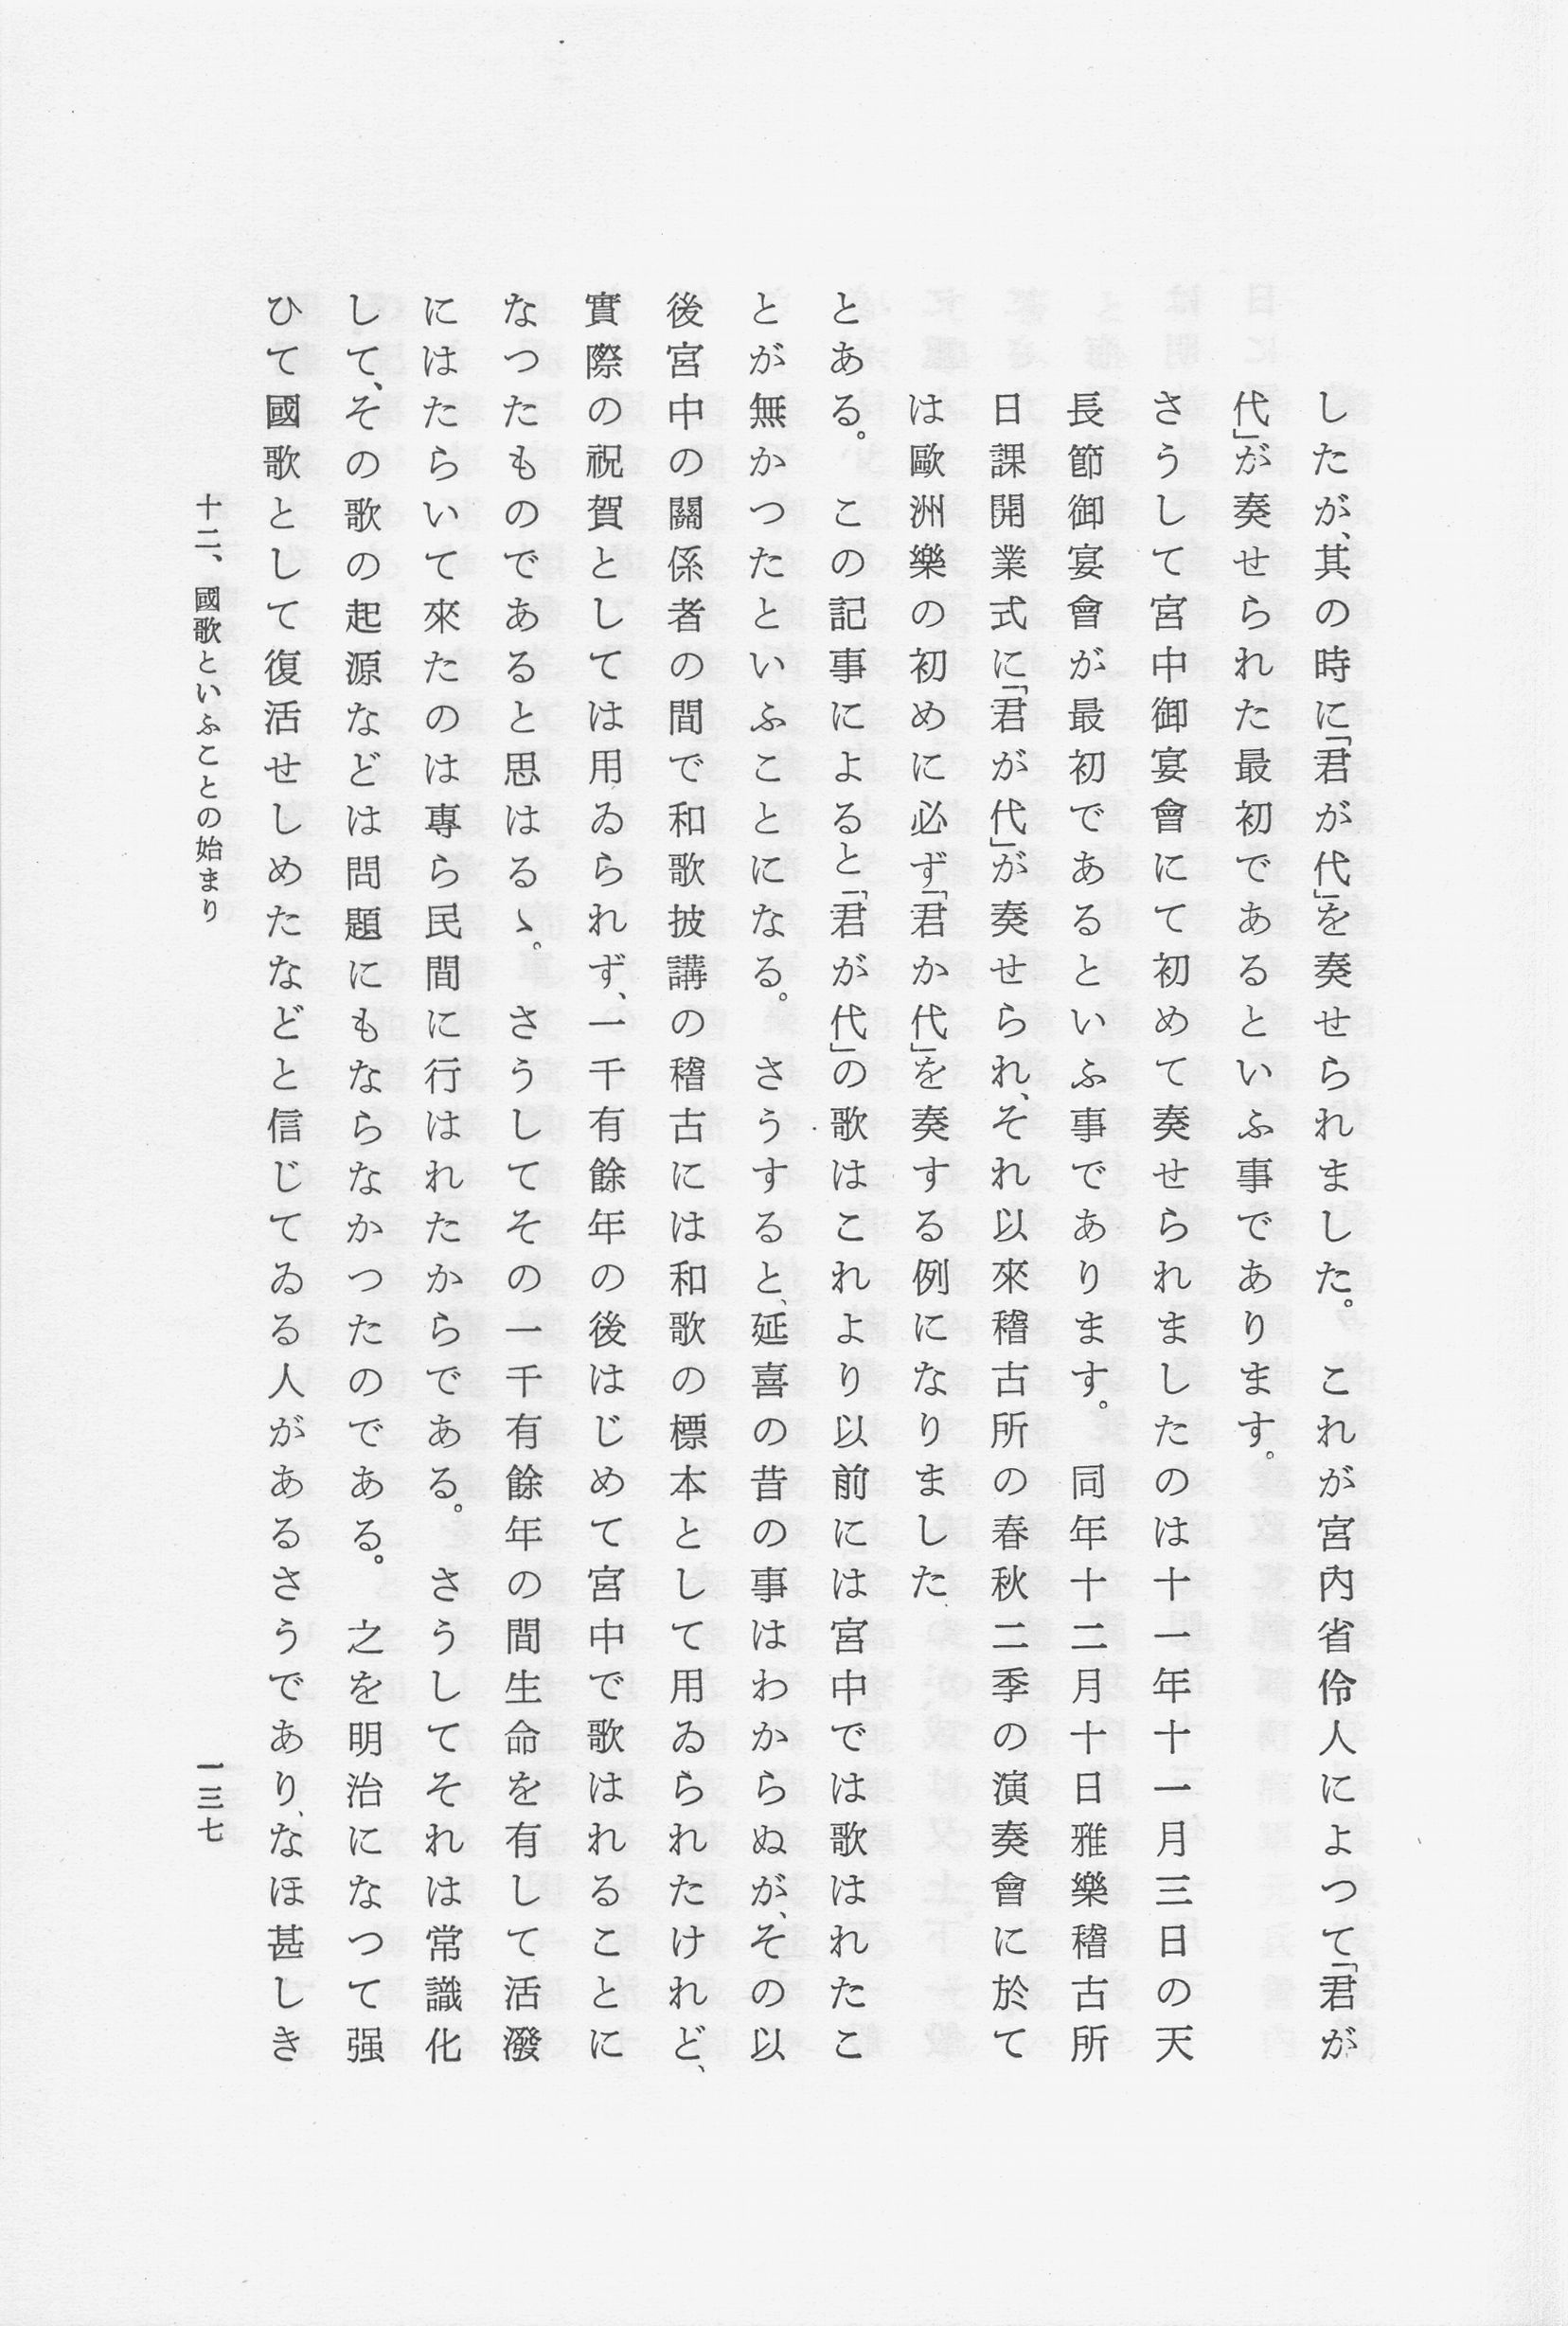 したが、其の時に「君が代」を奏せられました。　これが宮内省伶人によつて「君が
代」が奏せられた最初であるといふ事であります。
さうして宮中御宴會にて初めて奏せられましたのは十一年十一月三日の天
長節御宴會が最初であるといふ事であります。　同年十二月十日雅樂稽古所
日課開業式に「君が代」が奏せられ、それ以來稽古所の春秋二季の演奏會に於て
は歐洲樂の初めに必ず「君か代」を奏する例になりました
とある。　この記事によると「君が代」の歌はこれより以前には宮中では歌はれたこ
とが無かつたといふことになる。　さうすると、延喜の昔の事はわからぬが、その以
後宮中の關係者の間で和歌披講の稽古には和歌の標本として用ゐられたけれど、
實際の祝賀としては用ゐられず、一千有餘年の後はじめて宮中で歌はれることに
なつたものであると思はるゝ。　さうしてその一千有餘年の間生命を有して活潑
にはたらいて來たのは專ら民間に行はれたからである。　さうしてそれは常識化
して、その歌の起源などは問題にもならなかつたのである。　之を明治になつて强
ひて國歌として復活せしめたなどと信じてゐる人があるさうであり、なほ甚しき
十二、國歌といふことの始まり
一三七